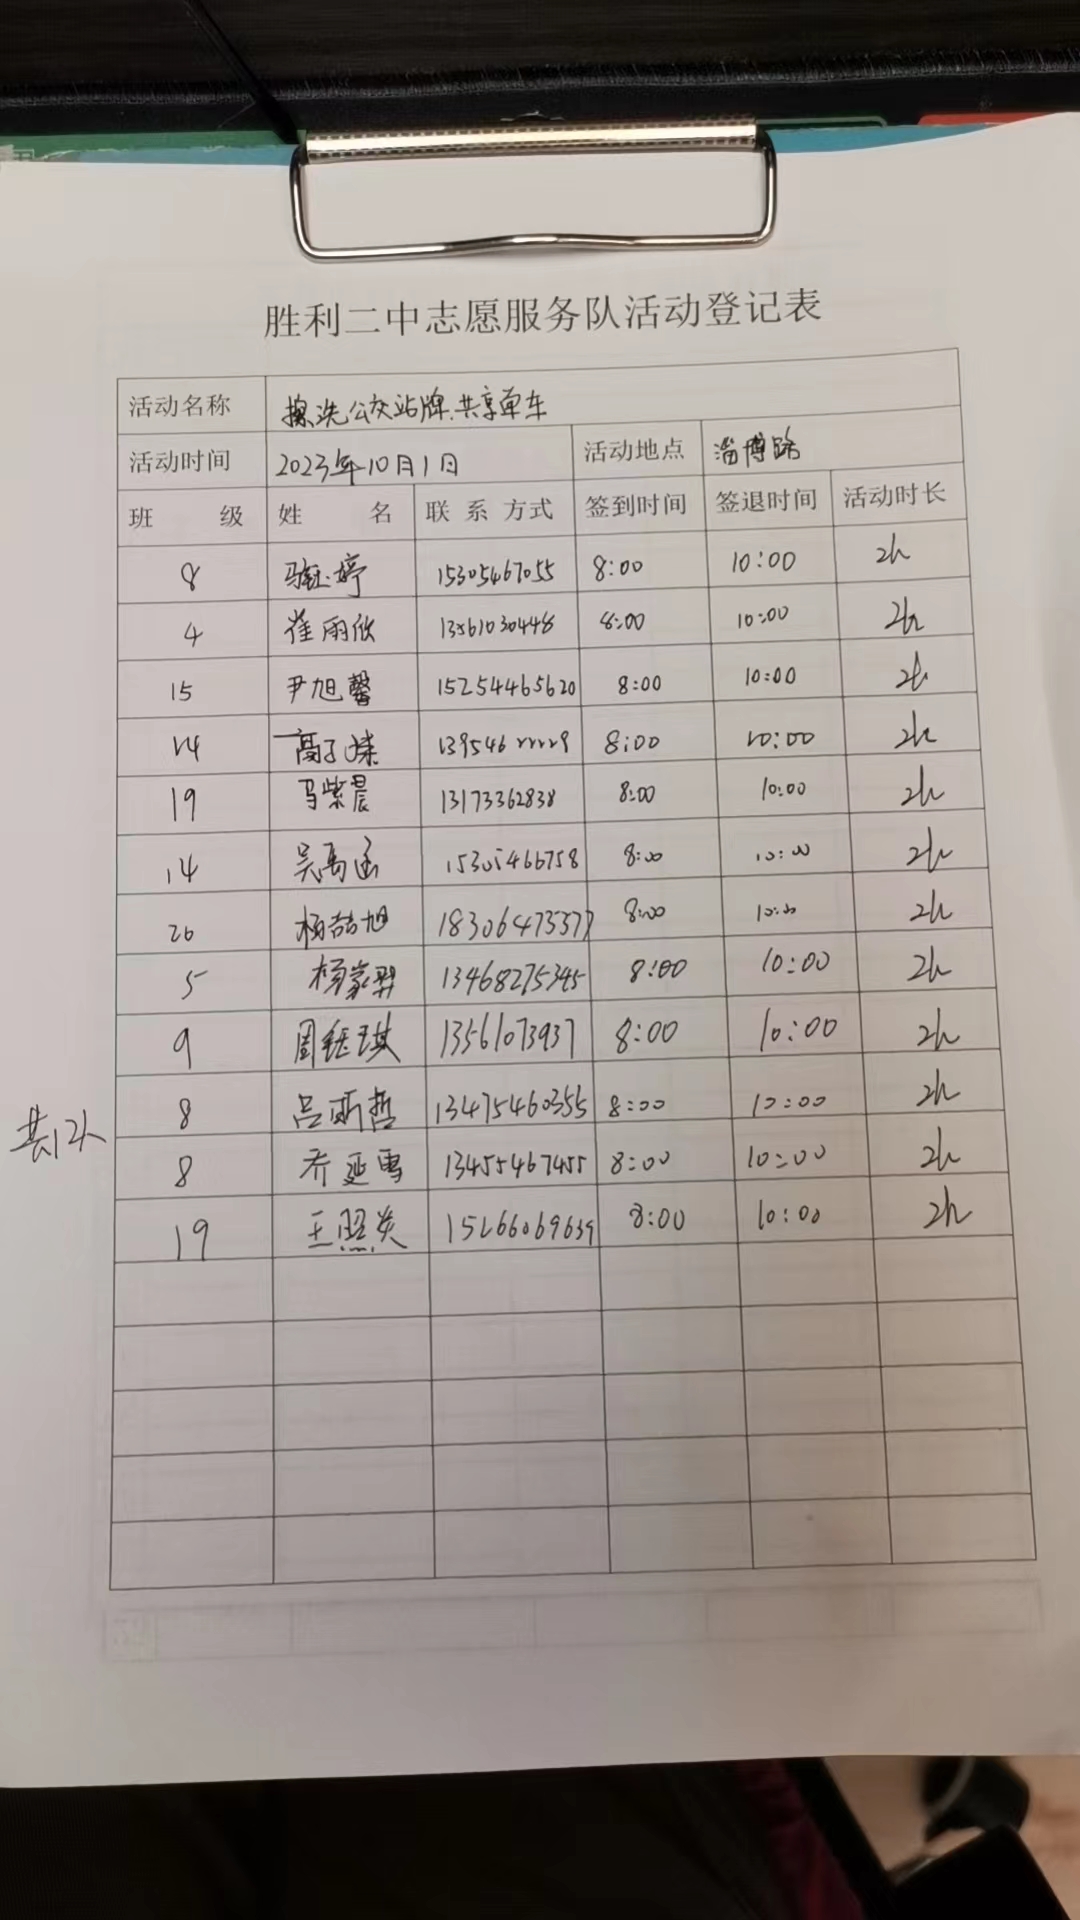 胜利二中志愿服务队活动登记表
活动名称 擦洗公交站牌.共享单车
活动时间 2023年10月1日 活动地点 淄博路
班 级 姓 名 联系方式 签到时间 签退时间 活动时长
8 马钰婷 15305467055 8:00 10:00 2h
4 崔雨欣 13561030448 8:00 10:00 2h
15 尹旭馨 15254465620 8:00 10:00 2h
14 高子 8:00 10:00 2h
19 马紫晨 13173362838 8:00 10:00 2h
14 吴禹函 15305466758 8:00 10:00 2h
26 杨喆旭 18306473377 8:00 10:00 2h
5 杨家羿 13468275345 8:00 10:00 2h
9 周钰琪 13561073937 8:00 10:00 2h
8 吕斯哲 13475460355 8:00 10:00 2h
共12人
8 乔延雪 13455467455 8:00 10:00 2h
19 王照炎 15266069639 8:00 10:00 2h